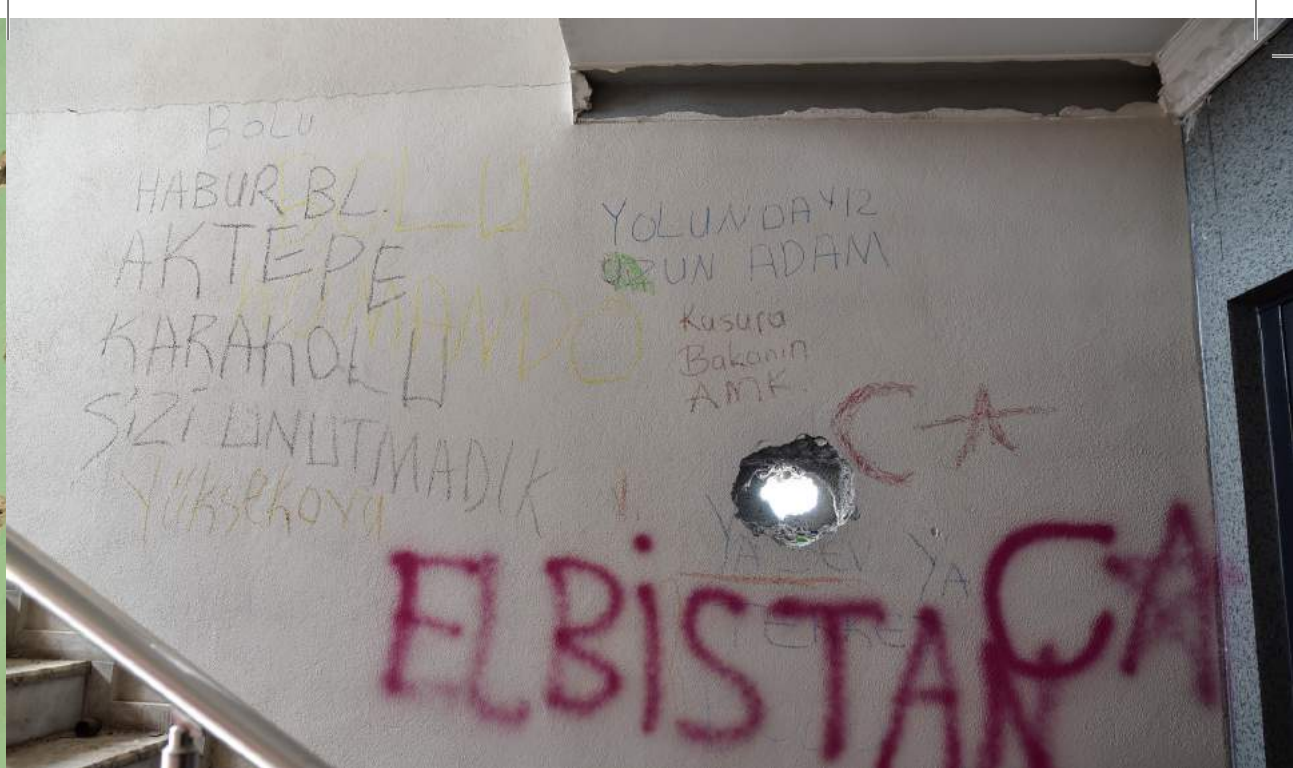 BOLU
HABUR BL.
AKTEPE
KARAKOLU
SİZİ UNUTMADIK
Yüksekova
BOLU
KOMANDO
YOLUNDAYIZ
UZUN ADAM
Kusura
Bakanın
AMK.
YA SEV YA
TERKET
ELBİSTAN